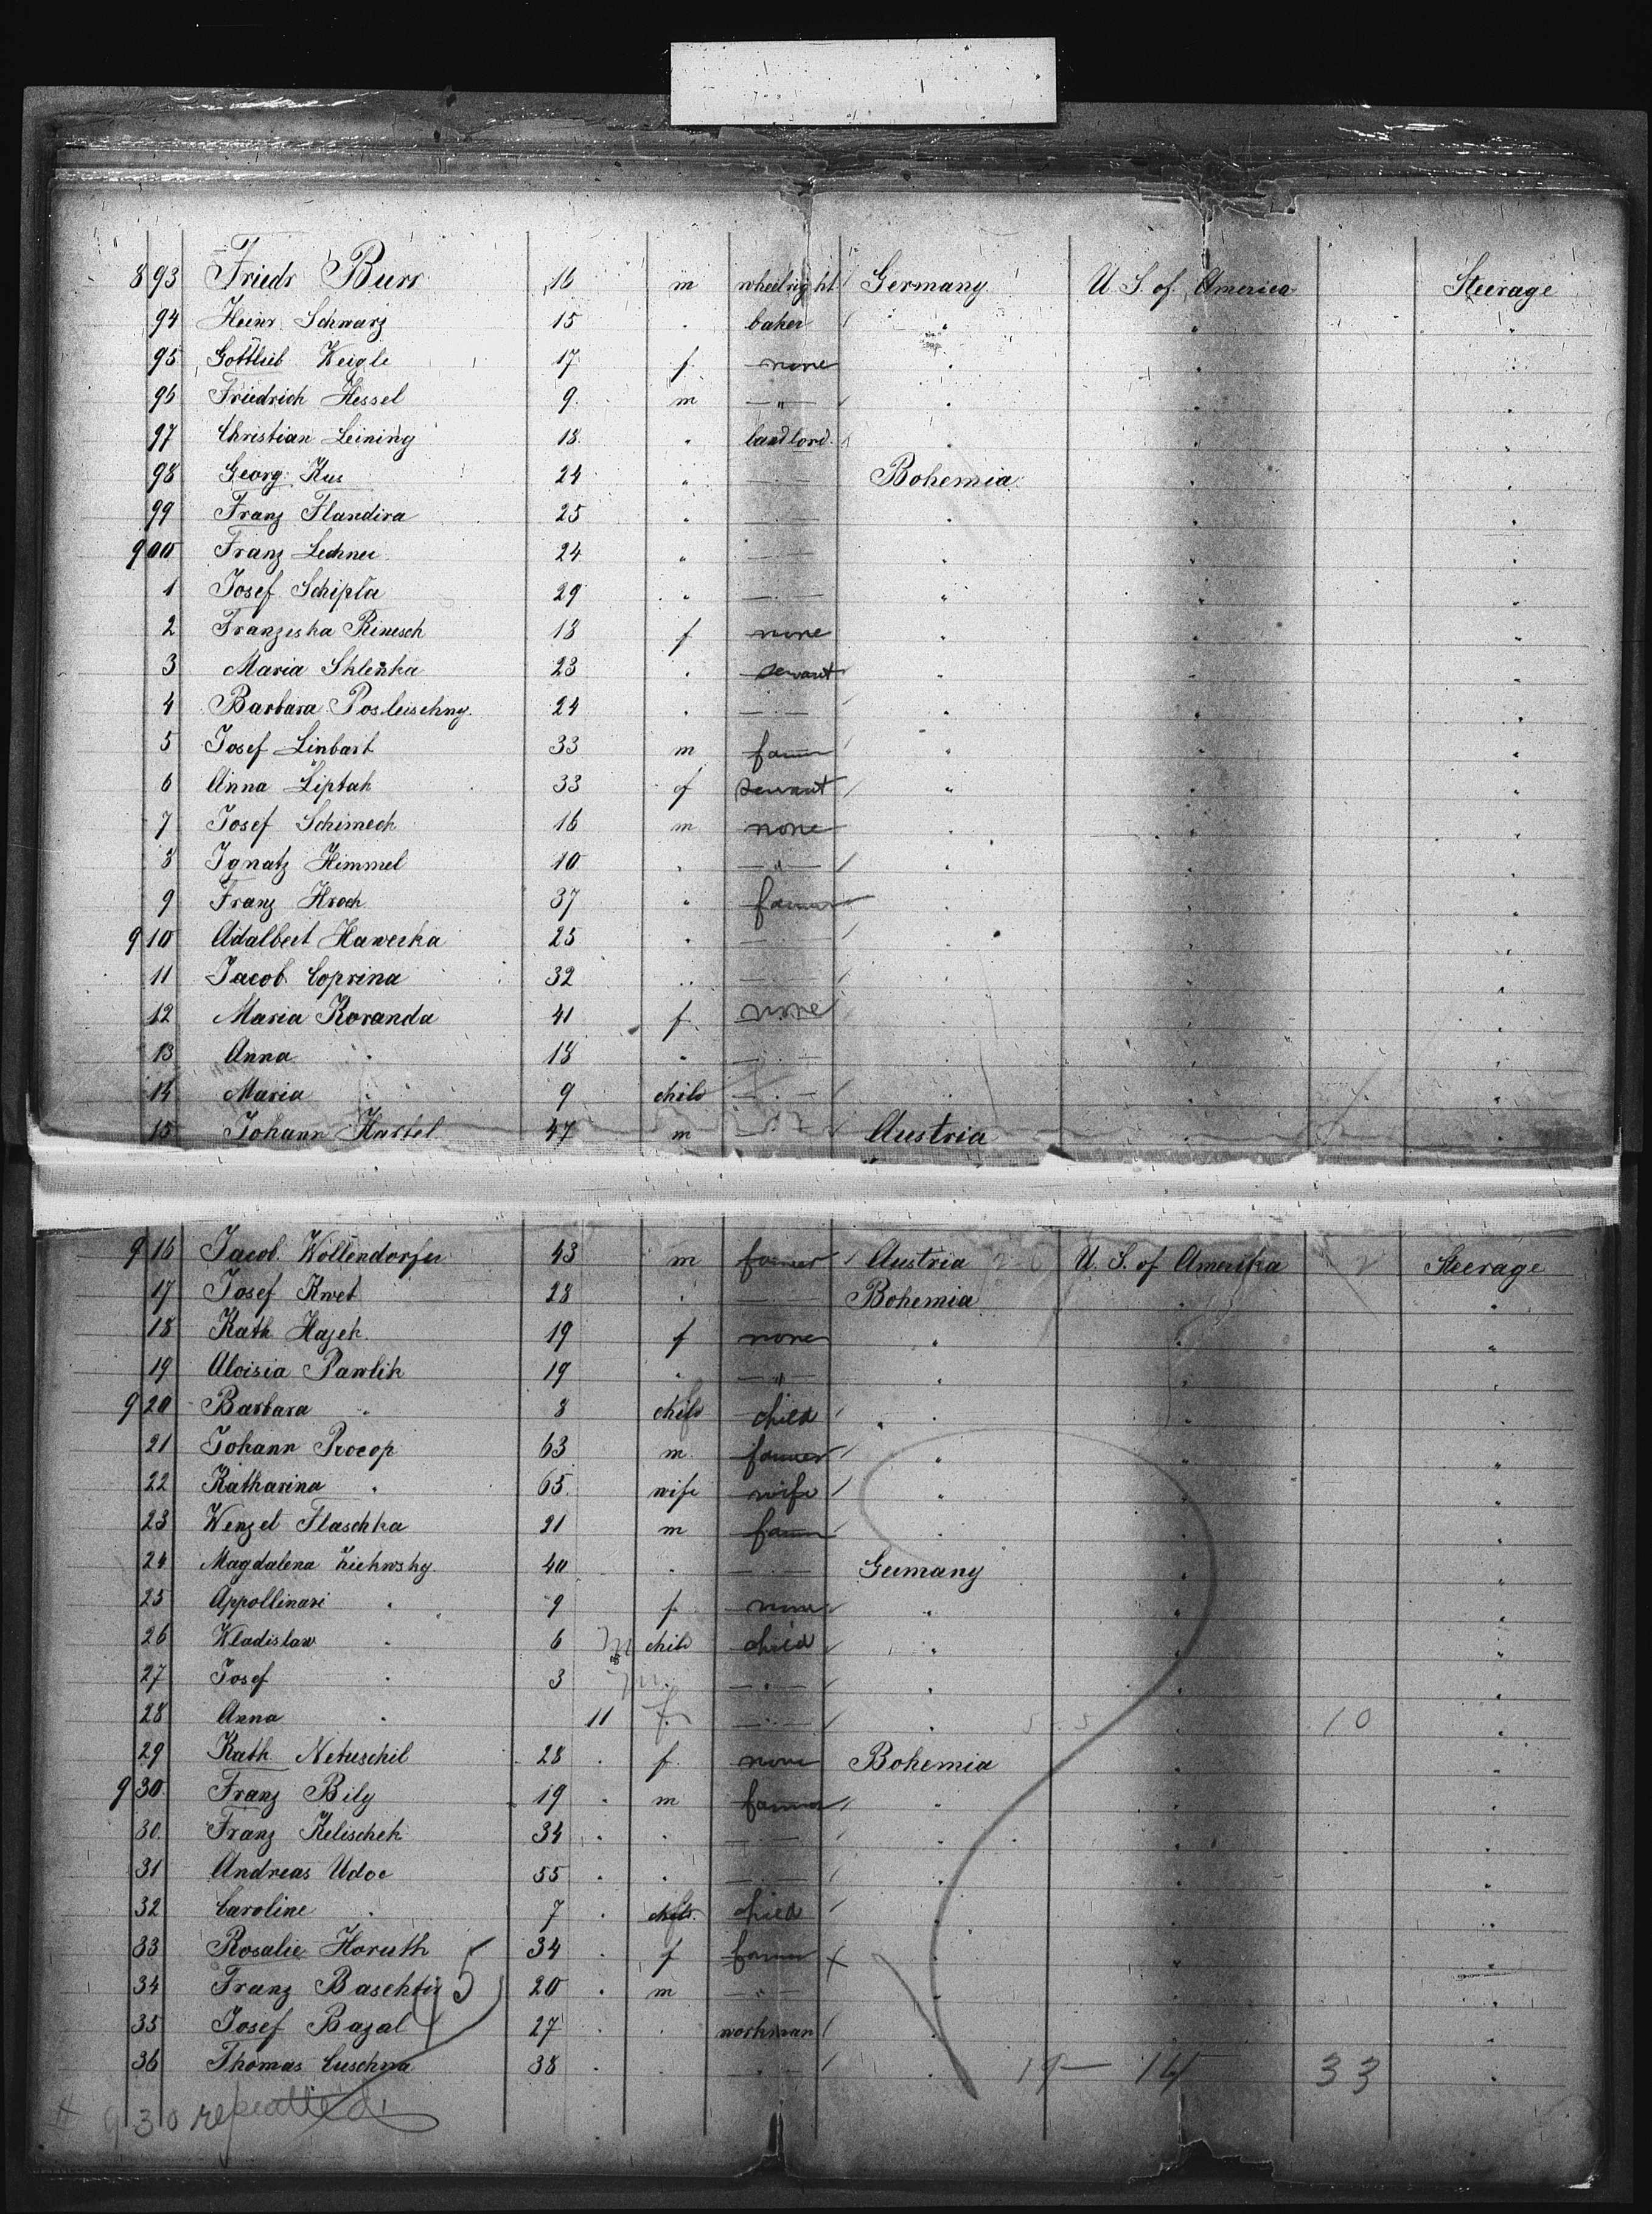 893 Friedr Burr 16 m wheelright Germany U. S. of America Steerage
94 Heinr. Schwarz 15 " baker " " "
95 Gottlieb Weigle 17 f. none " " "
96 Friedrich Hessel 9 m — " — " " "
97 Christian Leining 18 " landlord " " "
98 Georg Kus 24 " — " — Bohemia " "
99 Franz Flandira 25 " — " — " " "
900 Franz Lechner 24 " — " — " " "
1 Josef Schipla 29 " — " — " " "
2 Franziska Rinesch 18 f none " " "
3 Maria Sklenka 23 " servant " " "
4 Barbara Posleischny 24 " — " — " " "
5 Josef Linbart 33 m farmer " " "
6 Anna Liptak 33 f servant " " "
7 Josef Schimech 16 m none " " "
8 Ignatz Himmel 10 " — " — " " "
9 Franz Kroch 37 " farmer " " "
910 Adalbert Hawerka 25 " — " — " " "
11 Jacob Coprina 32 " — " — " " "
12 Maria Koranda 41 f. none " " "
13 Anna " 18 " — " — " " "
14 Maria " 9 child — " — " " "
15 Johann Hartel 47 m — " — Austria " "
916 Jacob Wöllendorfer 43 m farmer Austria U. S. of Amerika Steerage
17 Josef Kwet 28 " — " — Bohemia " "
18 Kath Hajek 19 f none " " "
19 Aloisia Pawlik 19 " — " — " " "
920 Barbara " 8 child child " " "
21 Johann Procop 63 m farmer " " "
22 Katharina " 65 wife wife " " "
23 Wenzel Flaschka 21 m farmer " " "
24 Magdalena 40 " — " — Germany " "
25 Appollinari " 9 f none " " "
26 Wladislaw " 6 m child child " " "
27 Josef " 3 m " — " — " " "
28 Anna " 11 f — " — " " 10 "
29 Kath Netuschil 28 f none Bohemia " "
930 Franz Bily 19 m farmer " " "
30 Franz Kelischek 34 " — " — " " "
31 Andreas Udoc 55 " — " — " " "
32 Caroline " 7 child child " " "
33 Rosalie Horuth 34 f farmer " " "
34 Franz 20 m — " — " " "
35 Josef Bazal 27 " workman " " "
36 Thomas Cuschna 38 " — " — " 19 — 14 33 "
930 repeatted